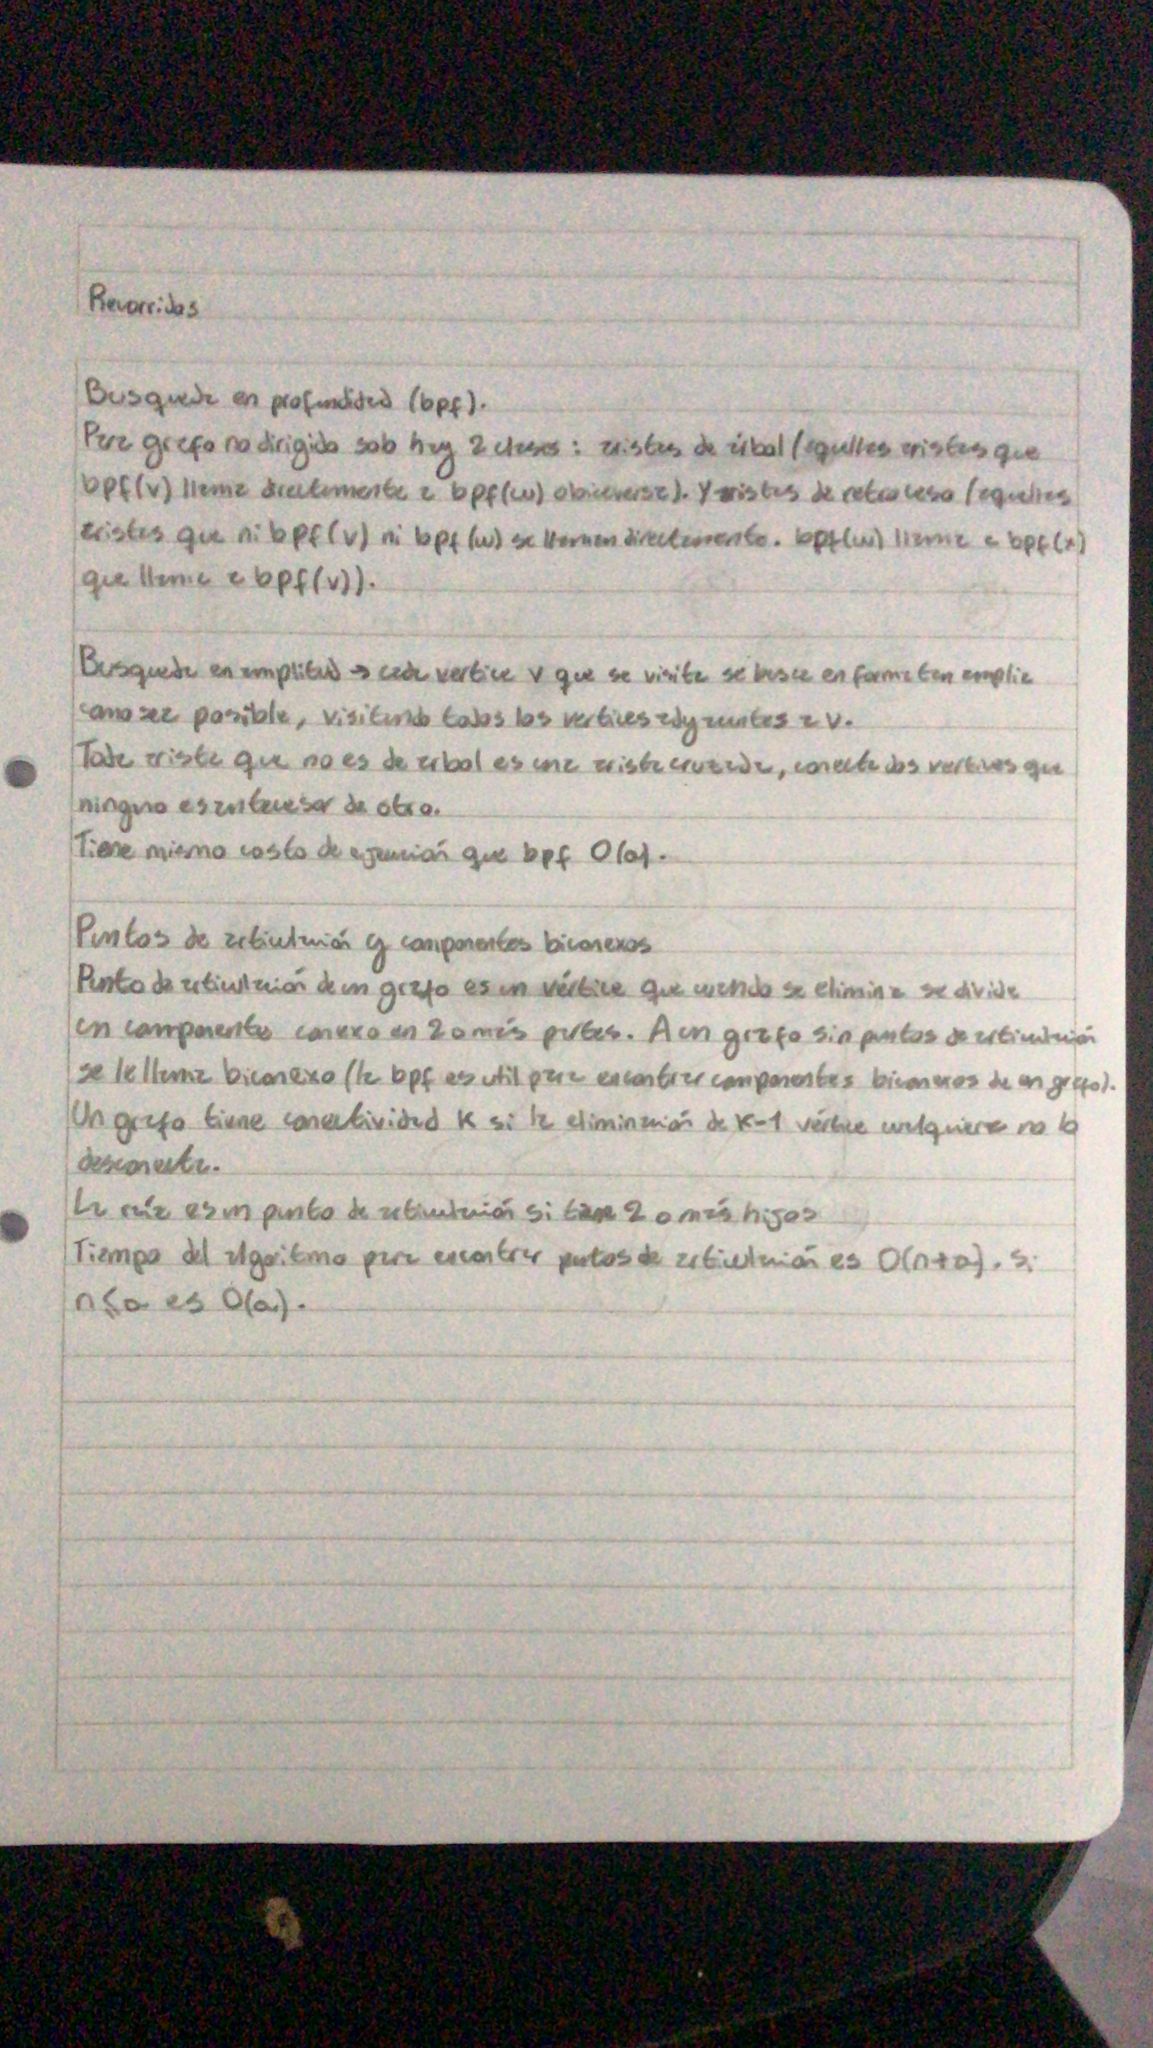 Recorridos
Busqueda en profundidad (bpf).
Para grafo no dirigido solo hay 2 clases: aristas de árbol (aquellas aristas que
bpf(v) llama directamente a bpf(w) o biceversa). Y aristas de retroceso (aquellas
aristas que ni bpf(v) ni bpf(w) se llaman directamente. bpf(w) llama a bpf(x)
que llama a bpf(v)).
Busqueda en amplitud → cada vertice v que se visita se busca en forma tan amplia
como sea posible, visitando todos los vertices adyacentes a v.
Toda arista que no es de arbol es una arista cruzada, conecta dos vertices que
ninguno es antecesor de otro.
Tiene mismo costo de ejecución que bpf O(a).
Puntos de articulación y componentes biconexos
Punto de articulación de un grafo es un vértice que cuando se elimina se divide
un componente conexo en 2 o más partes. A un grafo sin puntos de articulación
se le llama biconexo (la bpf es util para encontrar componentes biconexos de un grafo).
Un grafo tiene conectividad K si la eliminación de K-1 vértice cualquiera no lo
desconecta.
La raíz es un punto de articulación si tiene 2 o más hijos
Tiempo del algoritmo para encontrar puntos de articulación es O(n+a). Si
n≤a es O(a).